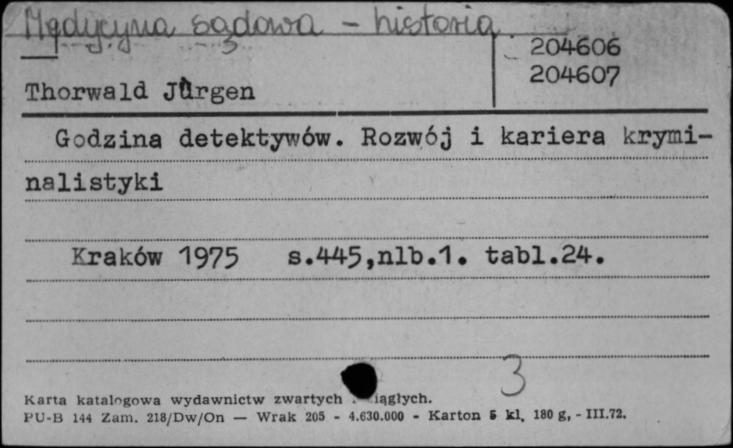 Medycyna sądowa - historia
204606
204607
Thorwald Jürgen
Godzina detektywów. Rozwój i kariera krymi-
nalistyki
Kraków 1975 s.445,nlb.1. tabl.24.
3
Karta katalogowa wydawnictw zwartych iągłych.
PU-B 144 Zam. 218/Dw/On — Wrak 205 - 4.630.000 - Karton 5 kl. 180 g, - III.72.